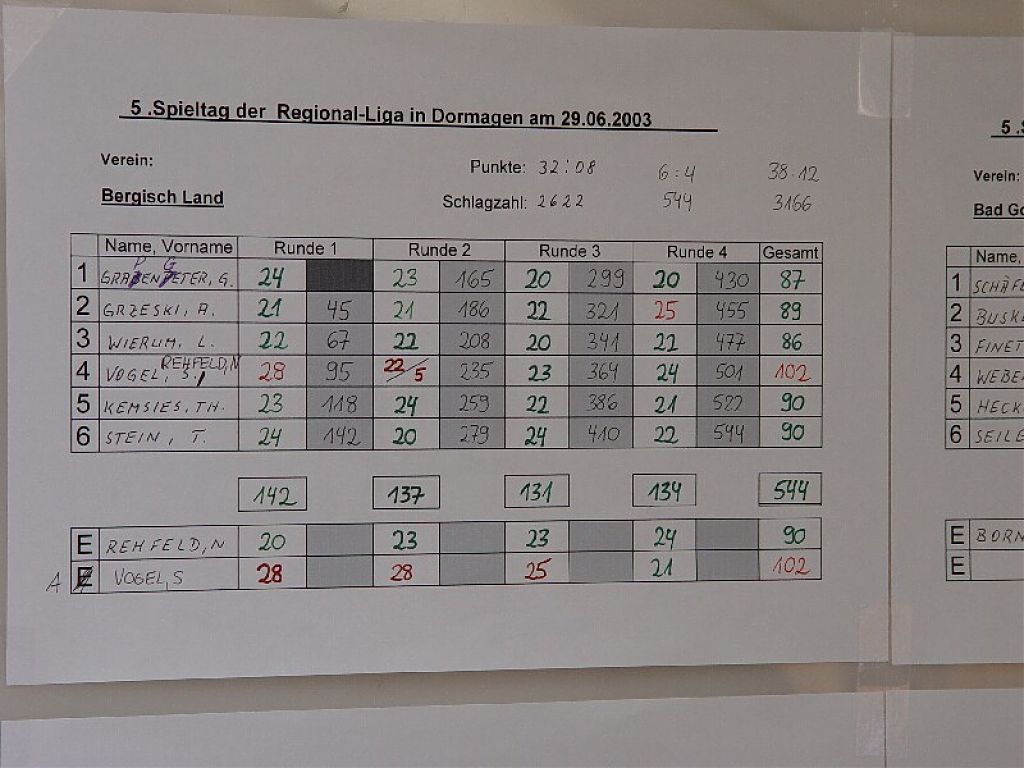 5 .Spieltag der Regional-Liga in Dormagen am 29.06.2003
Verein:
Bergisch Land
Punkte: 32:08 6:4 38:12
Schlagzahl: 2622 544 3166
Name, Vorname Runde 1 Runde 2 Runde 3 Runde 4 Gesamt
1 24 23 165 20 299 20 430 87
2 GRZESKI, A. 21 45 21 186 22 321 25 455 89
3 WIERUM, L. 22 67 22 208 20 341 22 477 86
4 VOGEL, S. REHFELD,N 28 95 22/5 235 23 364 24 501 102
5 KEMSIES, TH. 23 118 24 259 22 386 21 522 90
6 STEIN, T. 24 142 20 279 24 410 22 544 90
142 137 131 134 544
E REHFELD,N 20 23 23 24 90
A E VOGEL,S 28 28 25 21 102
5 .S
Verein:
Bad Go
Name,
1 SCHÄFE
2 BUSK
3 FINET
4 WEBE
5 HECK
6 SEILE
E BORN
E